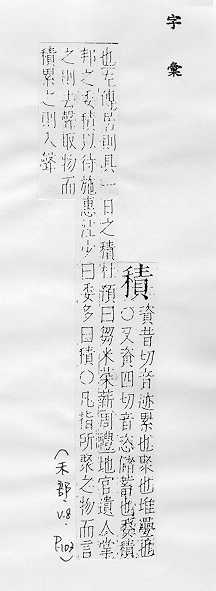 字彙
積
資昔切音迹累也聚也堆疊也
○又資四切音恣儲蓄也委積
也左傳居則具一日之積杜預曰芻米菜薪周禮地官遺人掌
邦之委積以待施惠註少曰委多曰積○凡指所聚之物而言
之則去聲取物而
積累之則入聲
(禾部. v.8.